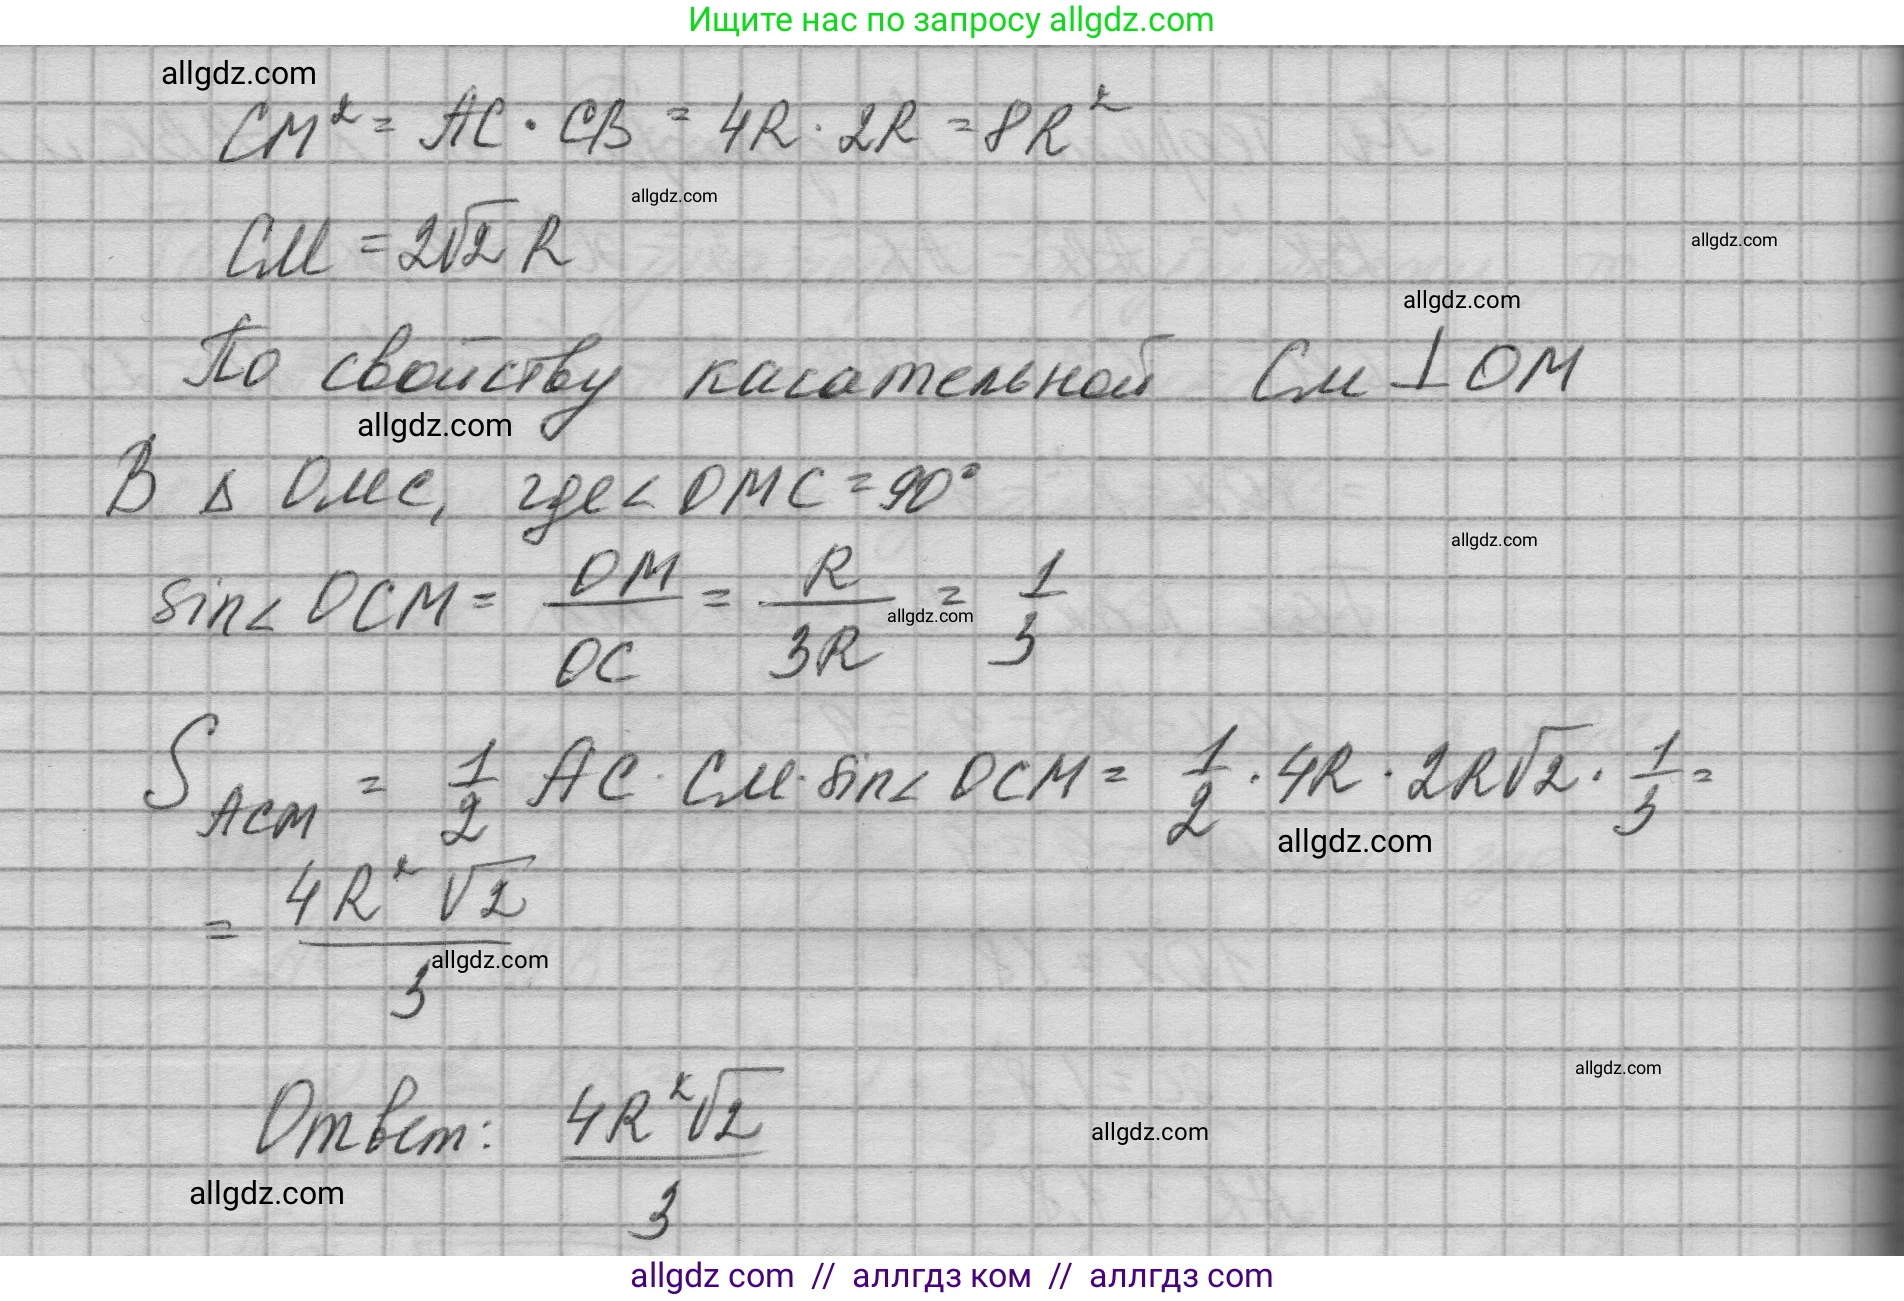 Ищите нас по запросу allgdz.com
allgdz.com
CM² = AC · CB = 4R · 2R = 8R²
allgdz.com
CM = 2√2 R
allgdz.com
allgdz.com
По свойству касательной CM ⊥ OM
allgdz.com
В Δ OMC, где < OMC = 90°
allgdz.com
sin< OCM = OM/OC = R/3R = 1/3
allgdz.com
S ACM = 1/2 AC · CM · sin< OCM = 1/2 · 4R · 2R√2 · 1/3 =
allgdz.com
= 4R²√2/3
allgdz.com
allgdz.com
Ответ: 4R²√2/3
allgdz.com
allgdz.com
allgdz com // аллгдз ком // аллгдз com